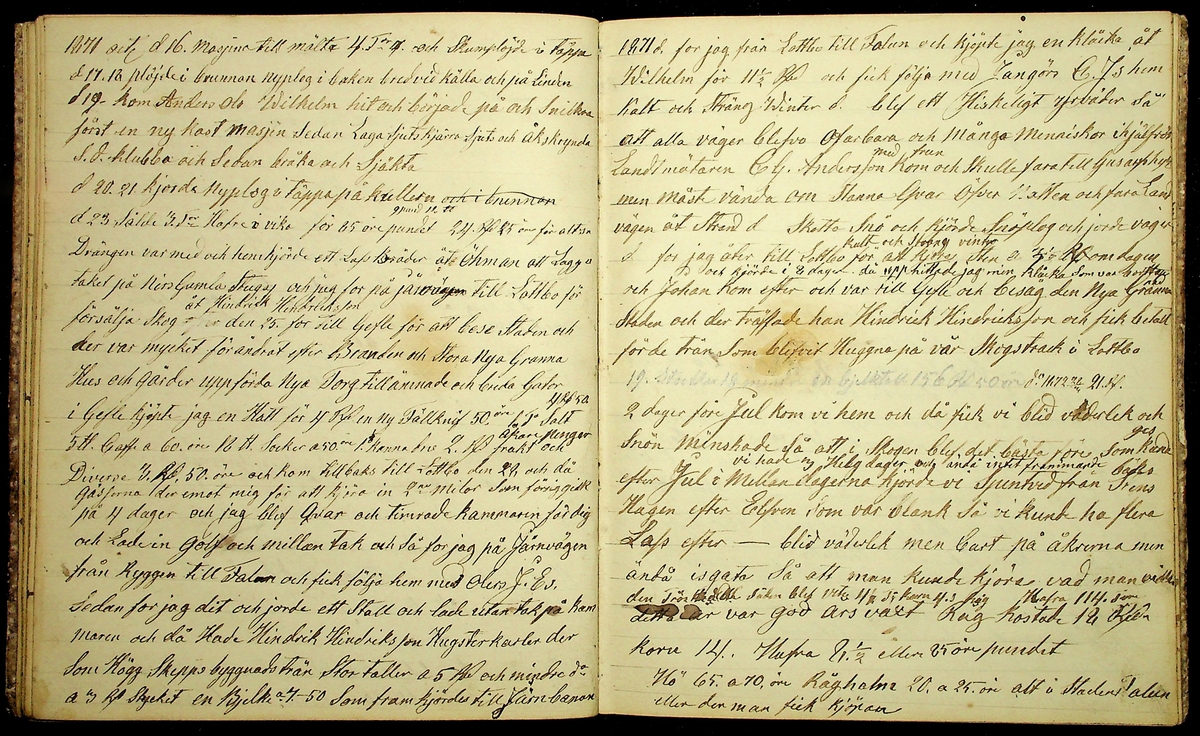 1871 octj d 16. Masjina till mälta 4. Tr 9. och Skumplöjde i Täppa
d 17. 18 plöjde i brunnan nyplog i baken bredvid källa och på Linden
d 19- kom Anders Ols Wilhelm hit och började på och Snickra
först en ny kast masjin Sedan Laga sjuts kjärra sjuts och Åkskrynda
S. d. klubba och Sedan bråka och Sjäkta
d 20. 21. kjorde nyplog i täppa på kullern och i brunnan
d 23 Sålde 3. Tr Hafre i vika för 65 öre pundet 24 Rd 25 öre för altsam
Drängen var med och hemkjörde ett Lass Bräder åt Öhman att Lägga
taket på Nirs Gamla Stuga och jag for på järnvägen till Lottbo för
åt Hindrick Hindricksson
försälja Skog den 25. for till Gefle för att bese Staden och
der var mycket förändrat efter Branden och Stora Nya Granna
Hus och Gårder uppförda Nya Torg tillämnade och breda Gator
i Gefle kjöpte jag en Hatt för 4 Rd en ny Fällknif 50 öre 1 Tr Salt 4 Rd 50
5 tt. Caffe a 60. öre 10 tt Socker a 50 öre 1 Kanna 2. Rd frakt och åkarepenger
Diverse 3. Rd, 50. öre och kom tillbaks till Lottbo den 28. och då
Gåsjorna der emot mig för att kjöra in 2 ne milor Som föriggick
på 4 dager och jag blef Qvar och timrade kammaren färdig
och Lade in Golf och mellan tak och Så for jag på Järnvägen
från Ryggen till Falun och fick följa hem med Olers J. Es.
Sedan for jag dit och jorde ett Stall och lade utan tak på kam
maren och då Hade Hindrik Hindriksson Hugsterkarler der
Som Högg Skepps byggnads trän Stortaller a 5 Rd och mindre do
a 3 Rd Stycket en Kjelke a 7-50 Som framkjördes till Järnbanan
1871 d. for jag från Lottbo till Falun och kjöpte jag en klåcka åt
Wilhelm för 11 1/2 Rd och fick följa med Jangörs E. Js hem
Kalt och Sträng Winter d. blef ett Hiskeligt yrväder Så
att alla väger blefvo Ofarbara och Många Menniskor ihjälfrös
Landtmätaren C. G. Andersson med frun Kom och Skulle fara till Gustafs
men måst vända om Stanna Qvar Öfver Natten och fara Lans
vägen åt Strand d Skotta Snö och kjörde Snöplog och jorde väger
kalt och Sträng vinter
d. for jag åter till Lottbo för att kjöra
och kjörde i 8 dager. då upphittade jag min klåcka Som var borttap
och Johan kom efter och var till Gefle och besåg den Nya Granna
Staden och der träffade han Hindrick Hindricksson och fick betalt
för de trän Som blefvit Huggna på vår Skogstrack i Lottbo
19. Stockar 18 mindre en kjelke till 156 Rd 50 öre
2 dager före Jul kom vi hem och då fick vi blid väderlek och
Snön minskade Så att i Skogen blef det bästa före Som kunde ges
vi hade 3 Helgdager och ändå intet främmande
efter Jul i Mellandagerna kjorde vi Spintved från
Hagen efter Elfven Som var blank Så vi kunde ha flera
Lass efter — blid väderlek men bart på åkrerna men
ändå isgata Så att man kunde kjöra vad man ville
detta år var god årsväxt Råg kostade 18 Rd
Korn 14. Hafra 8 1/2 eller 85 öre pundet
Hö 65. a 70. öre Råghalm 20. a 25. öre alt i Staden Falun
eller der man fick kjöpan